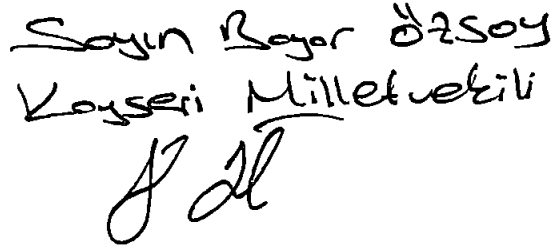 Sayın Bayar ÖZSOY
Kayseri Milletvekili